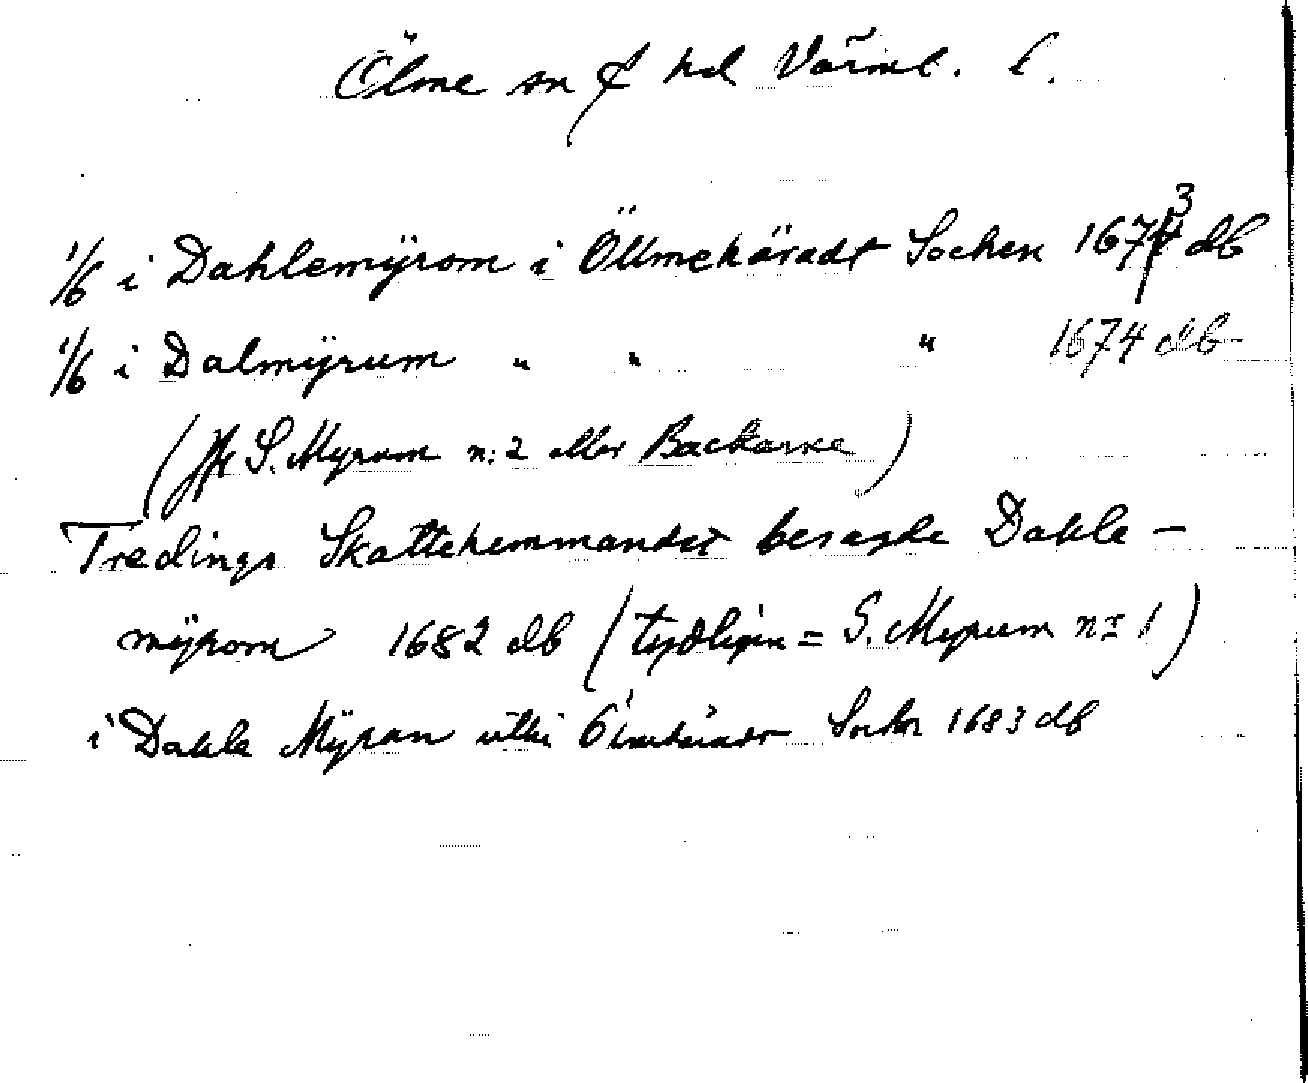 Ölme sn f hd Värml. l.
1/6 i Dahlemÿrom i Öllmehäradt Sochen 1673 db
1/6 i Dalmÿrum " " " 1674 db
(jfr S. Myrum n:2 eller Backarne)
Tredings Skattehemmandet besagde Dahle-
mÿrom 1682 db (tydligen = S. Myrum n:1)
i Dahle Mÿran uthi Sochn 1683 db